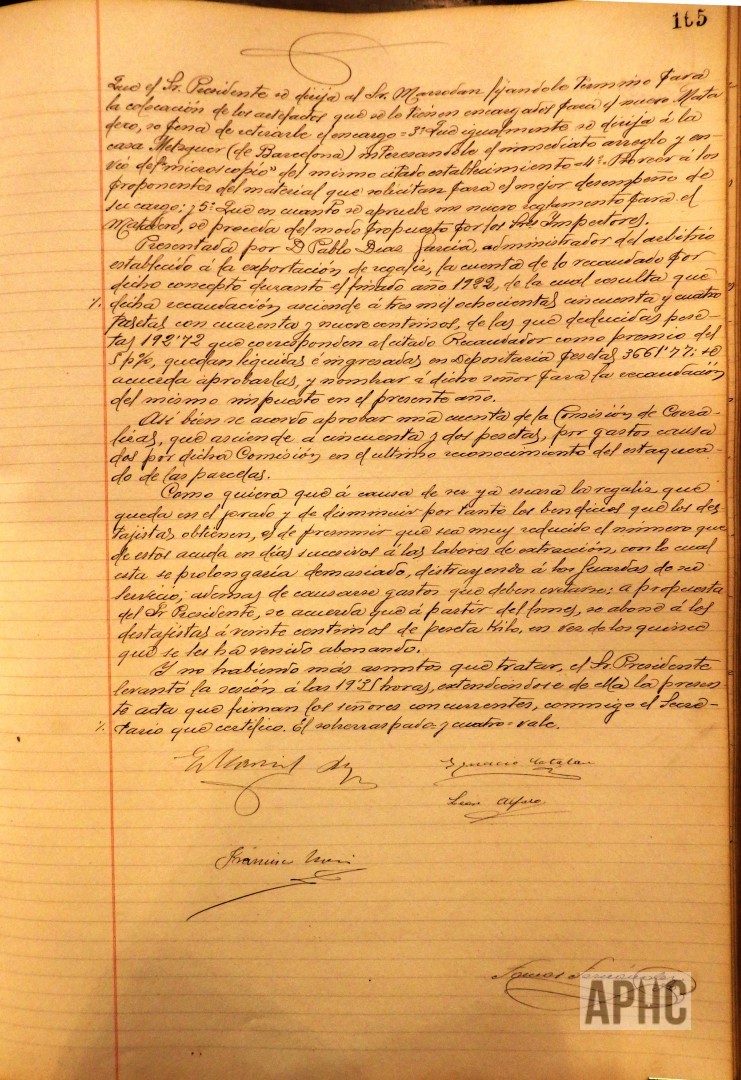 165
Que el Sr. Presidente se dirija al Sr. Marrodan fijandole termino para
la colocación de los artefactos que se le tienen encargados para el nuevo Mata
dero, so pena de retirarle el encargo = 3º Que igualmente se dirija á la
casa Metzguer (de Barcelona) interesandole el inmediato arreglo y en-
vio del "microscopio" del mismo citado establecimiento = 4º. Proveer á los
proponentes del material que solicitan para el mejor desempeño de
su cargo; y 5º Que en cuanto se apruebe un nuevo reglamento para el
Matadero, se proceda del modo propuesto por los Sres Inspectores.
Presentada por D Pablo Diaz Garcia, administrador del arbitrio
establecido á la exportación de regaliz, la cuenta de lo recaudado por
dicho concepto durante el finado año 1922, de la cual resulta que
dicha recaudación asciende á tres mil ochocientas cincuenta y cuatro
pesetas con cuarenta y nueve centimos, de las que deducidas pese-
tas 192'72 que corresponden al citado Recaudador como premio del
5 p%, quedan liquidas é ingresadas en Depositaria pesetas 3661'77; se
acuerda aprobarlas, y nombrar á dicho señor para la recaudación
del mismo impuesto en el presente año.
Asi bien se acordo aprobar una cuenta de la Comisión de Corra-
lizas, que asciende á cincuenta y dos pesetas, por gastos causa
dos por dicha Comisión en el ultimo reconocimiento del estaquea-
do de las parcelas.
Como quiera que á causa de ser ya escasa la regaliz que
queda en el prado y de disminuir por tanto los beneficios que los des-
tajistas obtienen, es de presumir que sea muy reducido el número que
de estos acuda en dias sucesivos á las labores de extracción, con lo cual
esta se prolongaria demasiado, distrayendo á los Guardas de su
servicio; ademas de causarse gastos que deben evitarse; a propuesta
del Sr Presidente, se acuerda que á partir del lunes, se abone á los
destajistas á veinte centimos de peseta Kilo, en vez de los quince
que se les ha venido abonando.
Y no habiendo más asuntos que tratar, el Sr. Presidente
levantó la sesión á las 19'35 horas, extendiéndose de ella la presen
te acta que firman los señores concurrentes, conmigo el Secre-
tario que certifico. El sobrerraspado = y cuatro = vale.
Ignacio Catalan
APHC